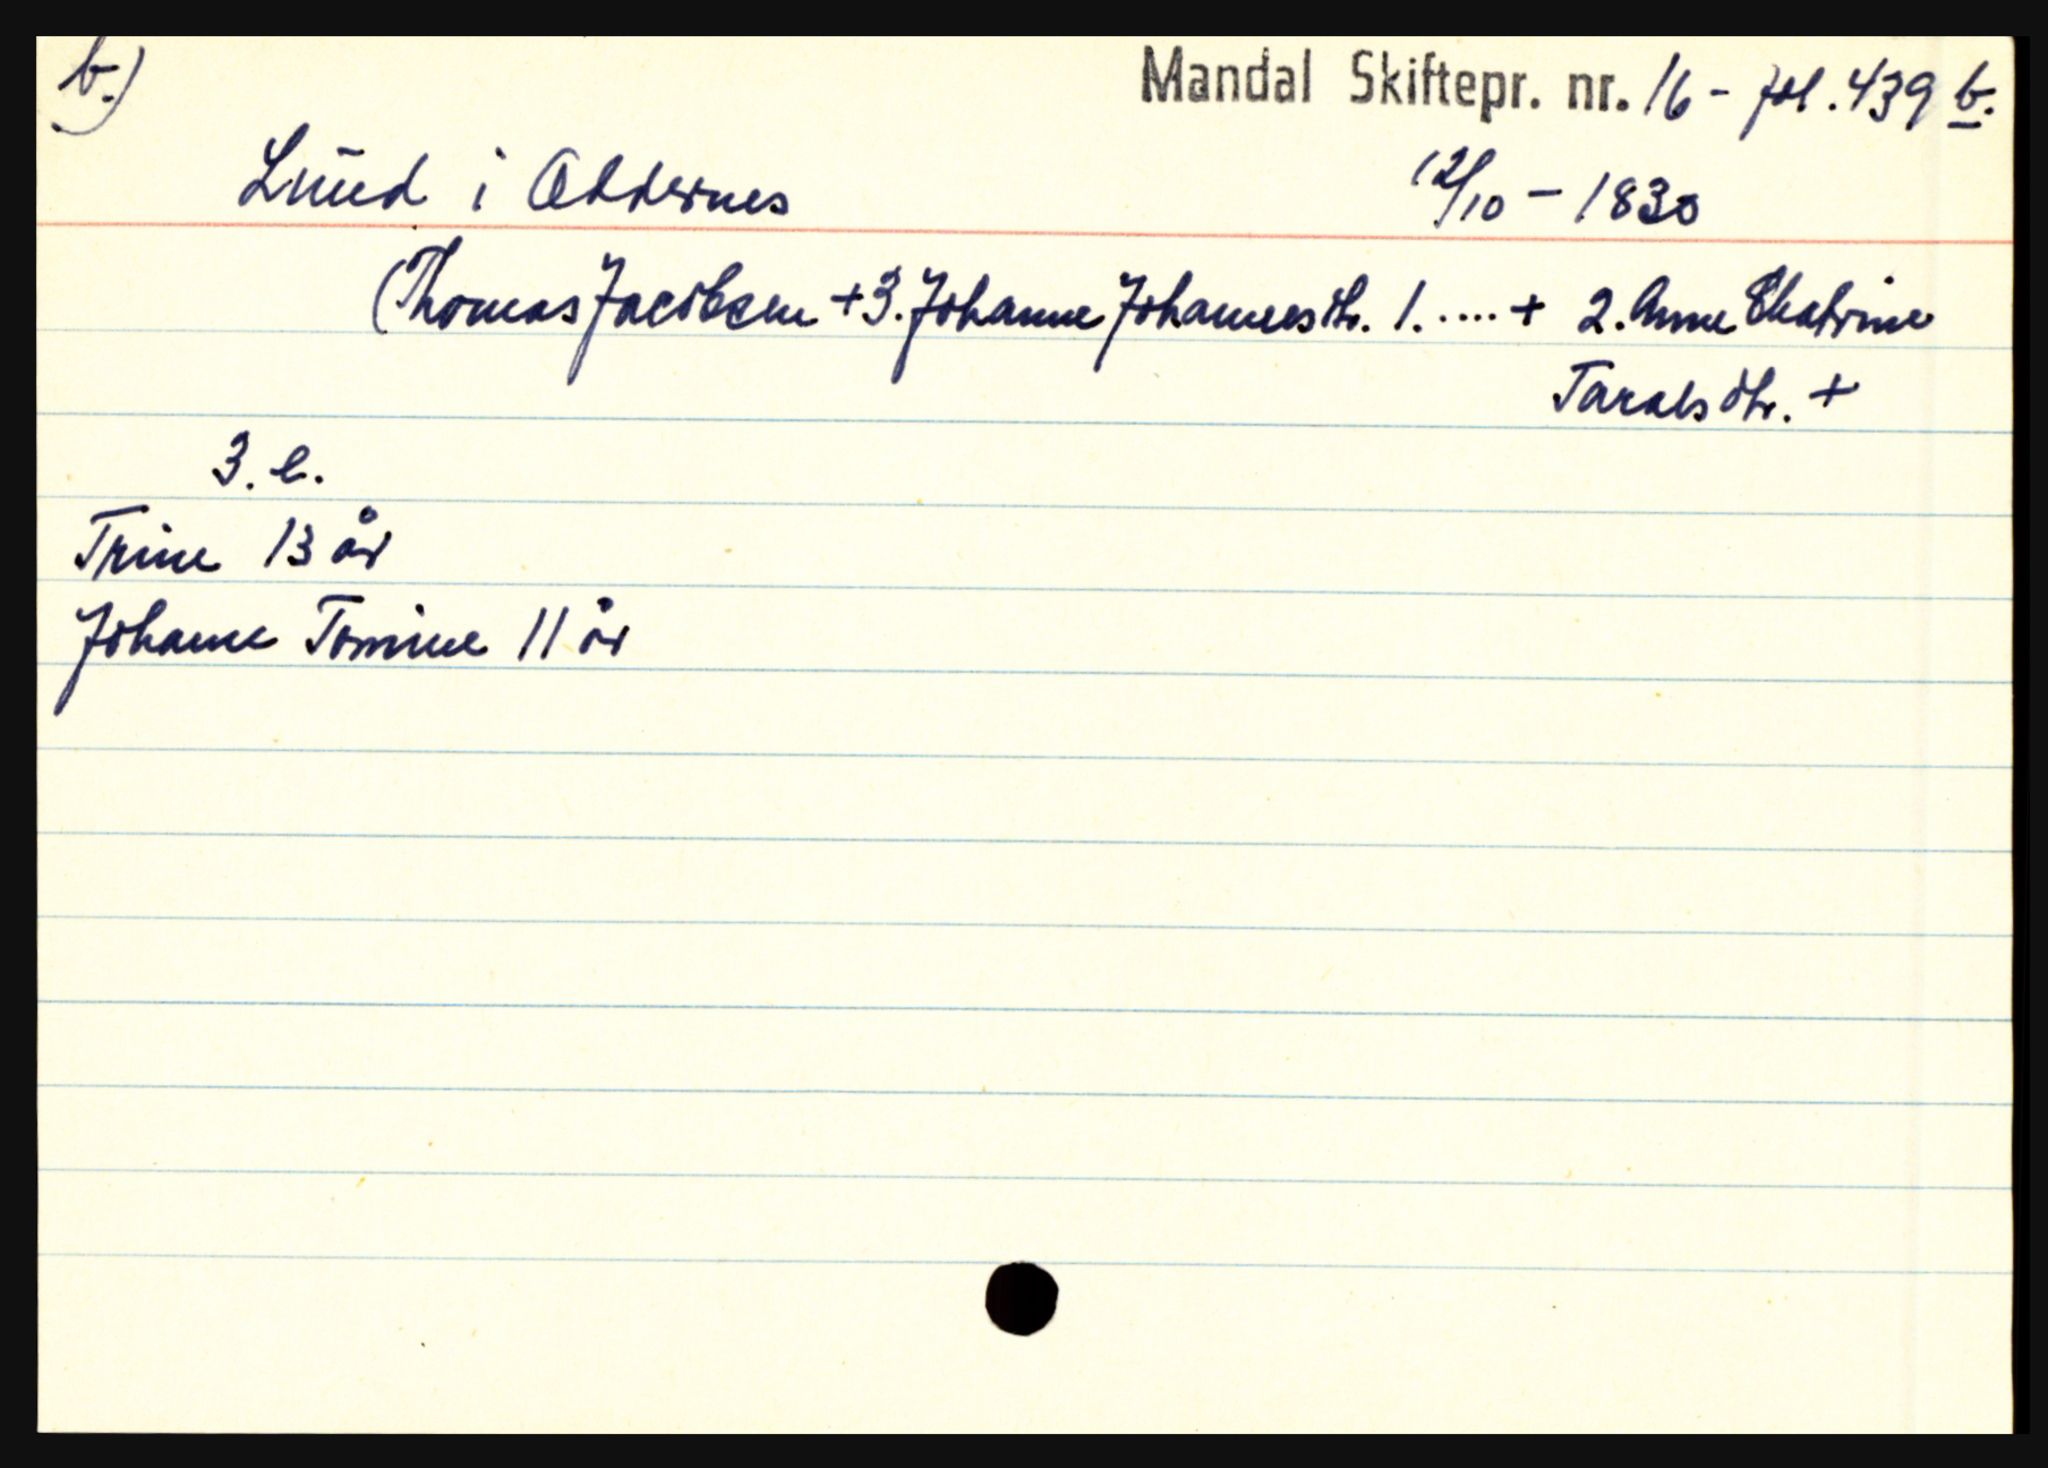 b.)
Mandal Skiftepr. nr. 16 - fol. 439 b.
Lund i Oddernes 12/10 - 1830
(Thomas Jacobsen + 3. Johanne Johannesdtr. 1. ..... + 2. Anne Chatrine
Taralsdtr. +
3. e.
Trine 13 år
Johanne Tomine 11 år